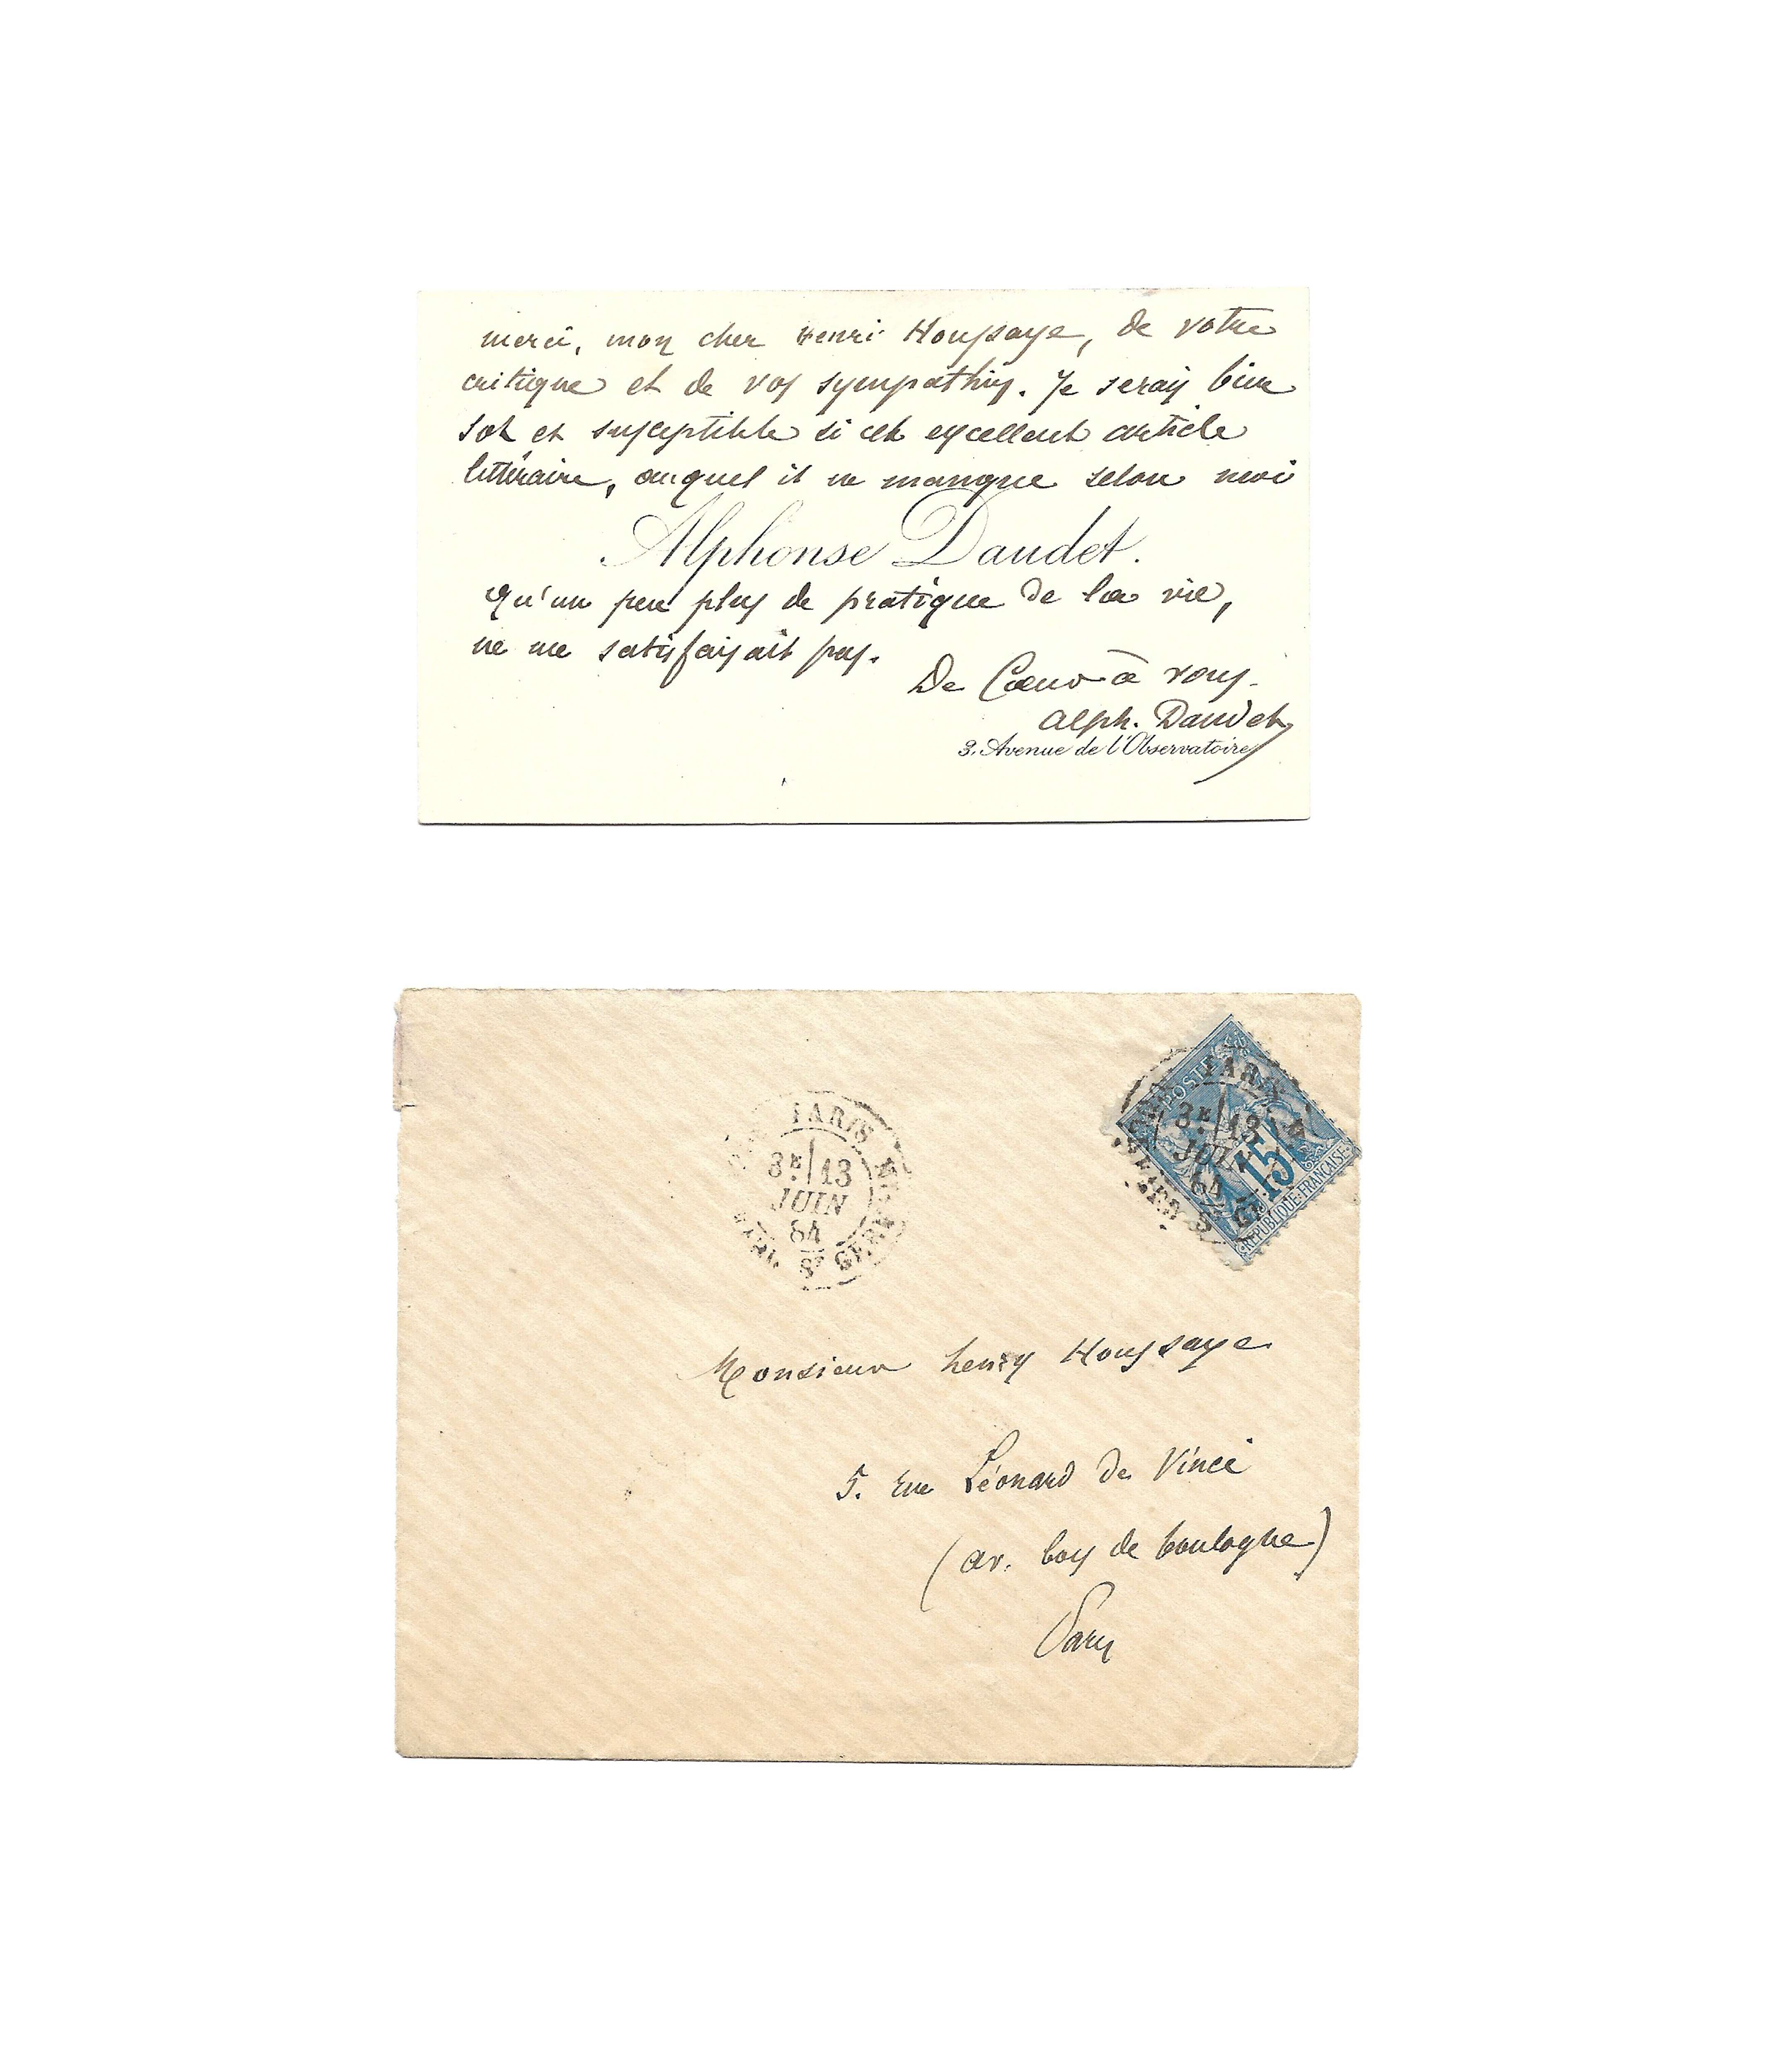 merci, mon cher Henri Houssaye, de votre
critique et de vos sympathies. Je serais bien
sot et susceptible si cet excellent article
littéraire, auquel il ne manque selon moi
Alphonse Daudet.
qu'un peu plus de pratique de la vie,
ne me satisfaisait pas.
De Cœur à vous.
Alph. Daudet
3, Avenue de l'Observatoire
POSTES
15
REPUBLIQUE FRANÇAISE
PARIS
3E 13
JUIN
84
PARIS
3E 13
JUIN
84
Bd St GERMAIN
Monsieur henry Houssaye
5. rue Léonard de Vinci
(av. bois de boulogne)
Paris